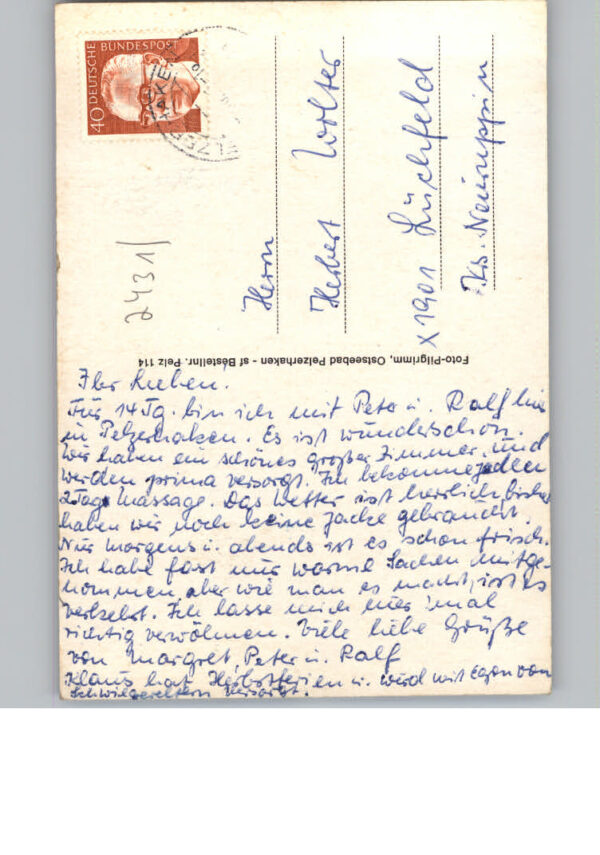 40 DEUTSCHE BUNDESPOST
2431/
Herrn
Herbert Wolter
X 1901 Lüchfeld
Krs. Neuruppin
Foto-Pilgrimm, Ostseebad Pelzerhaken - sf Bestellnr. Pelz 114
Ihr Lieben.
Für 14 Tg. bin ich mit Peter u. Ralf hier
in Pelzerhaken. Es ist wunderschön.
Wir haben ein schönes großes Zimmer, und
werden prima versorgt. Ich bekomme jeden
2. Tag Massage. Das Wetter ist herrlich, bisher
haben wir noch keine Jacke gebraucht.
Nur morgens u. abends ist es schon frisch.
Ich habe fast nur warme Sachen mitge-
nommen, aber wie man es macht, ist es
verkehrt. Ich lasse mich hier 'mal
richtig verwöhnen. Viele liebe Grüße
von Margret, Peter u. Ralf
Klaus hat Herbstferien u. wird mit Egon von
Schwiegereltern versorgt.